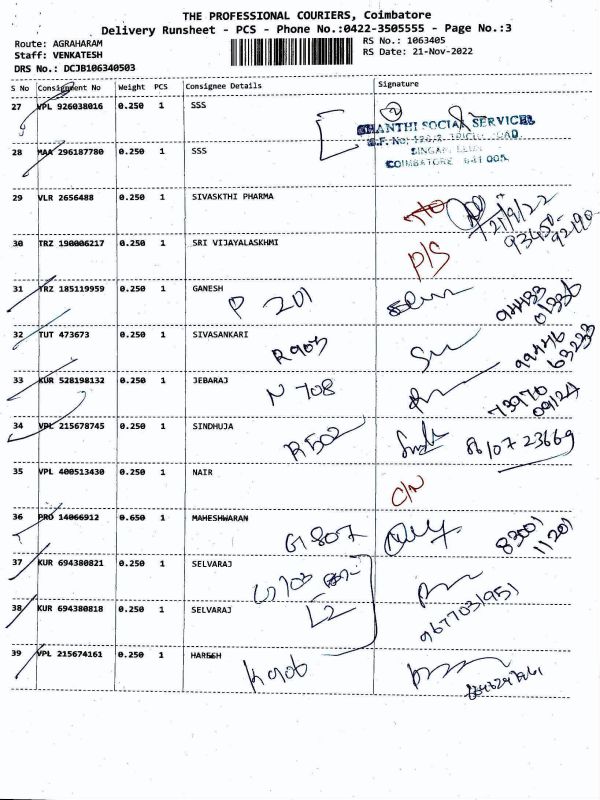 THE PROFESSIONAL COURIERS, Coimbatore
Delivery Runsheet - PCS - Phone No.:0422-3505555 - Page No.:3
Route: AGRAHARAM
RS No.: 1063405
Staff: VENKATESH
RS Date: 21-Nov-2022
DRS No.: DCJB106340503
S No Consignment No Weight PCS Consignee Details Signature
27 VPL 926038016 0.250 1 SSS
SHANTHI SOCIAL SERVICES
28 MAA 296187780 0.250 1 SSS
SINGANALLUR
COIMBATORE 641 005.
29 VLR 2656488 0.250 1 SIVASKTHI PHARMA
30 TRZ 190006217 0.250 1 SRI VIJAYALASKHMI P/S
31 TRZ 185119959 0.250 1 GANESH P 201 94433 01336
32 TUT 473673 0.250 1 SIVASANKARI R 903 99446 63233
33 KUR 528198132 0.250 1 JEBARAJ N 708 73970 09124
34 VPL 215678745 0.250 1 SINDHUJA R502 86107 23669
35 VPL 400513430 0.250 1 NAIR C/N
36 PRO 14066912 0.650 1 MAHESHWARAN G1 807 83001 11201
37 KUR 694380821 0.250 1 SELVARAJ
38 KUR 694380818 0.250 1 SELVARAJ L2 9677031951
39 VPL 215674161 0.250 1 HARESH K 906